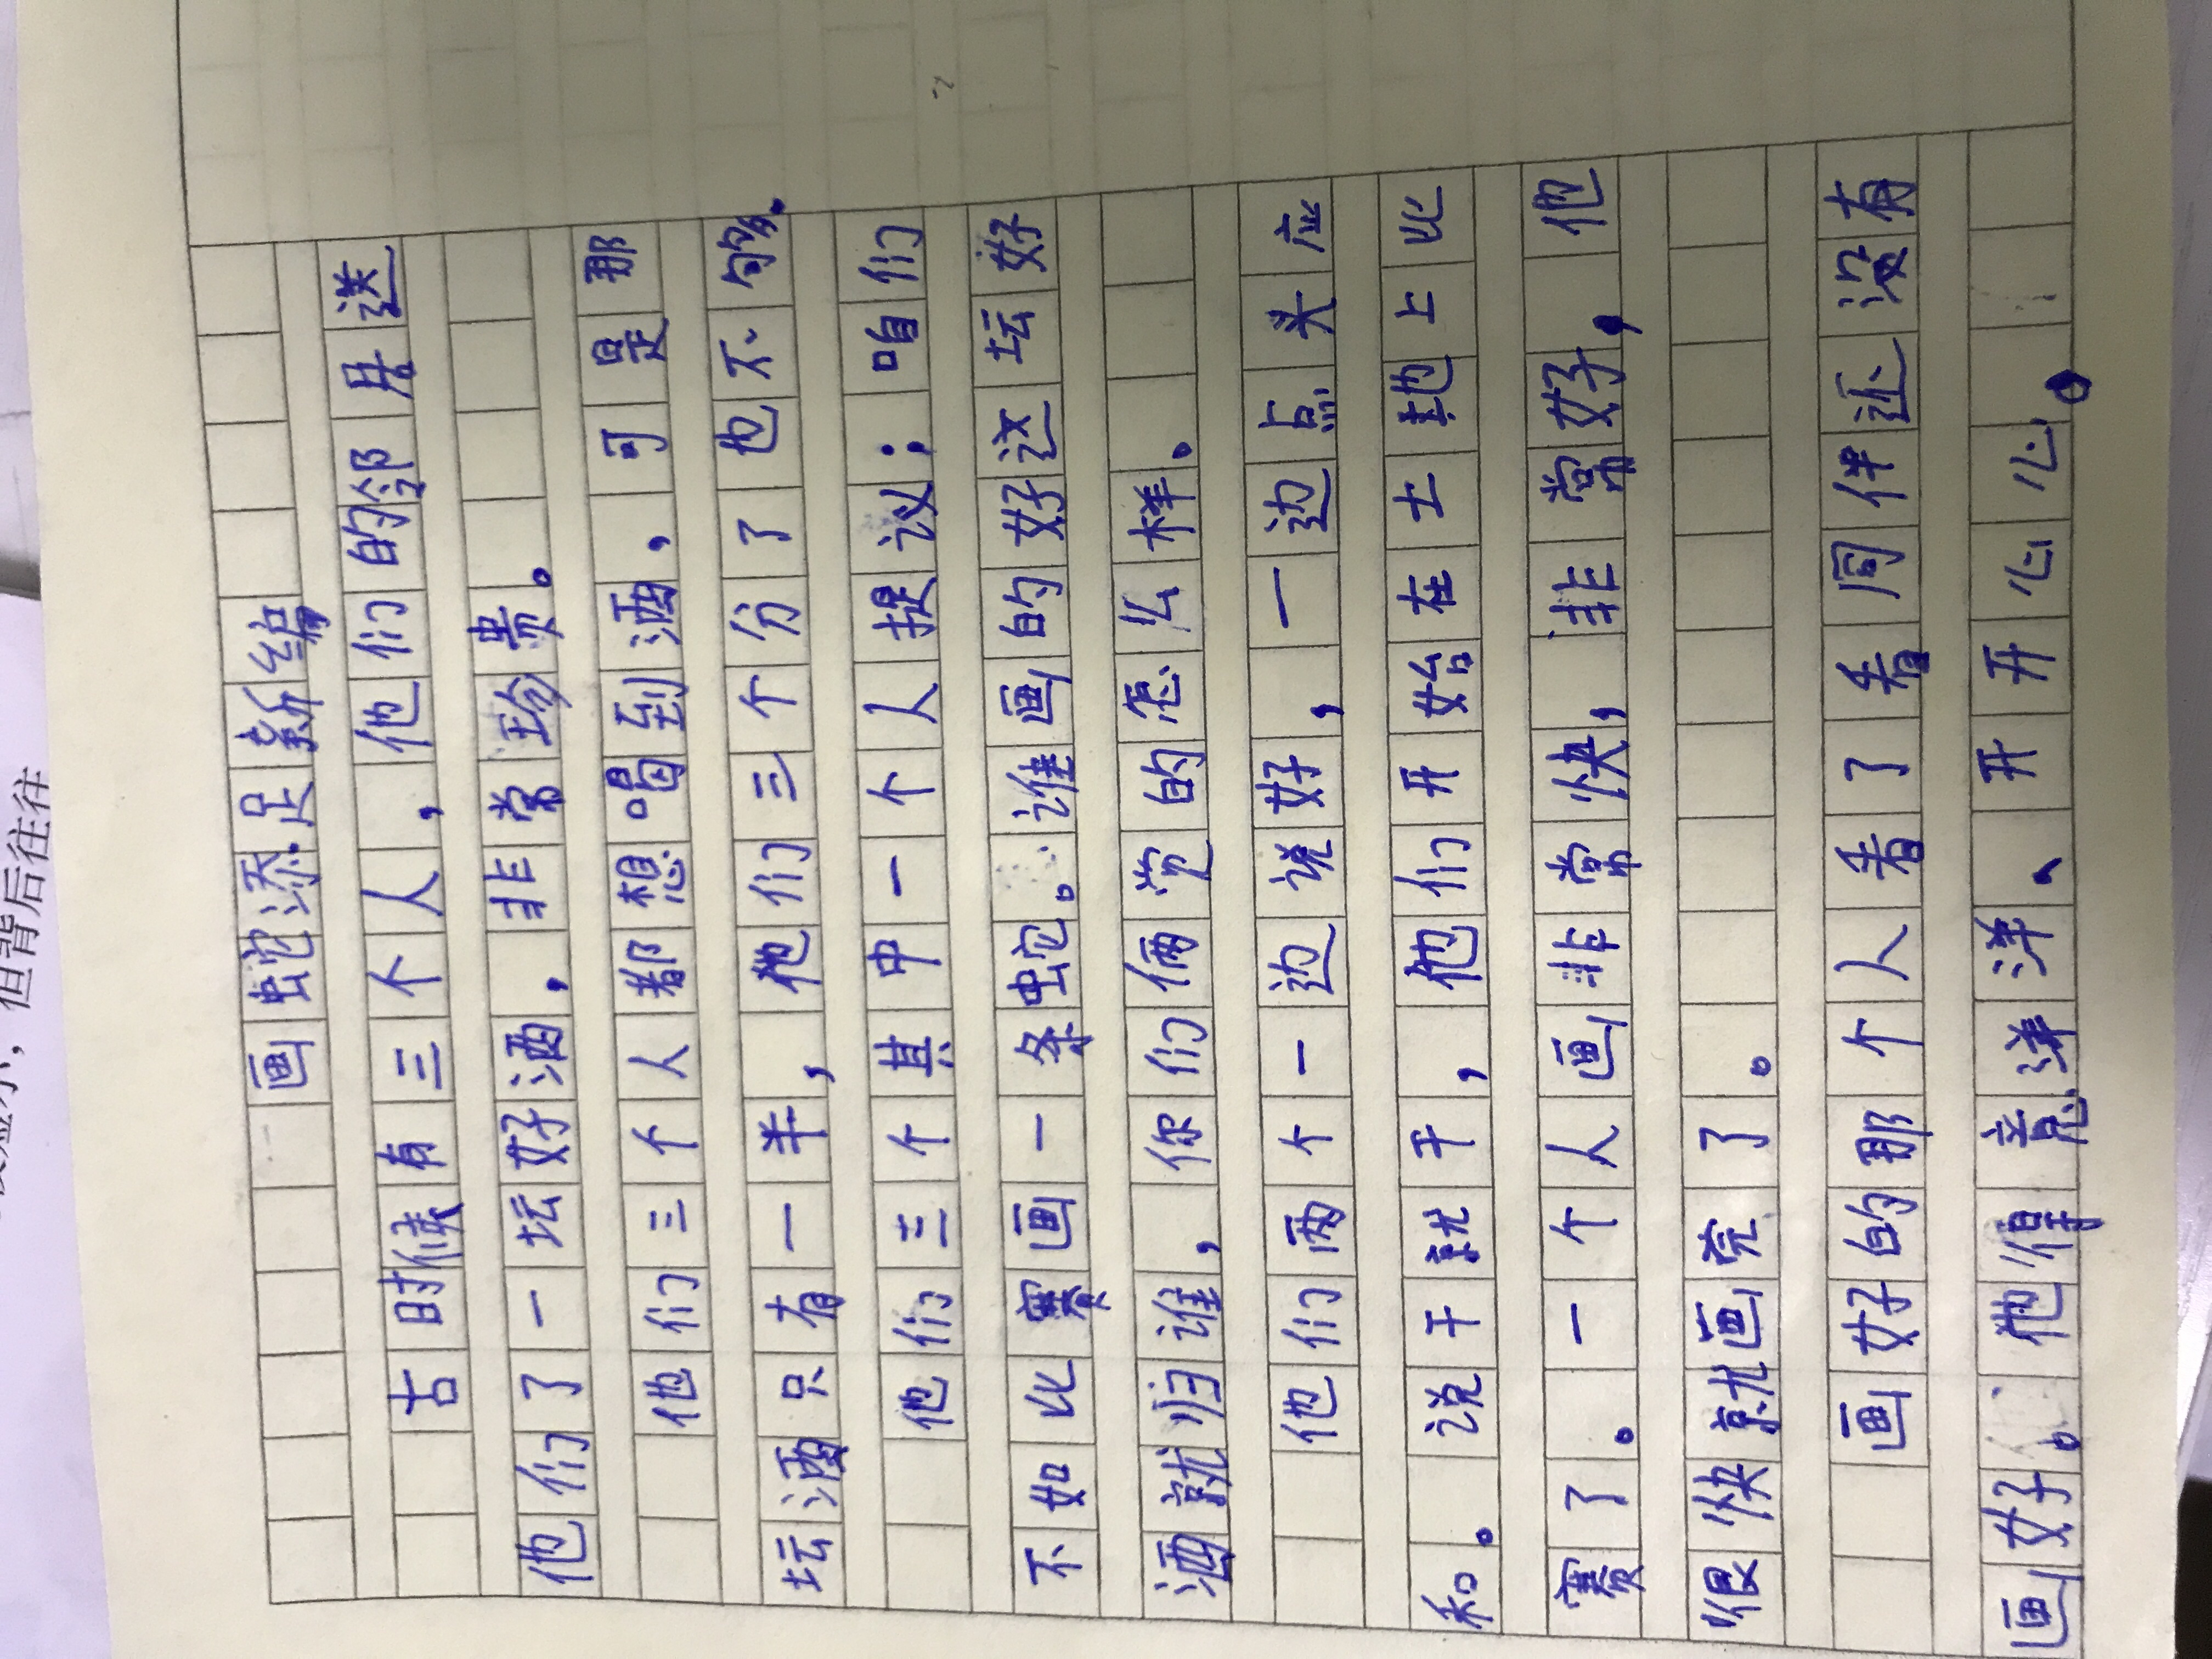 画蛇添足新编
古时候有三个人，他们的邻居送
他们了一坛好酒，非常珍贵。
他们三个人都想喝到酒，可是那
坛酒只有一半，他们三个分了也不够。
他们三个其中一个人提议：咱们
不如比赛画一条蛇。谁画的好这坛好
酒就归谁，你们俩觉的怎么样。
他们两个一边说好，一边点头应
和。说干就干，他们开始在土地上比
赛了。一个人画非常快，非常好，他
很快就画完了。
画好的那个人看了看同伴还没有
画好。他得意洋洋、开开心心。
但背后往往